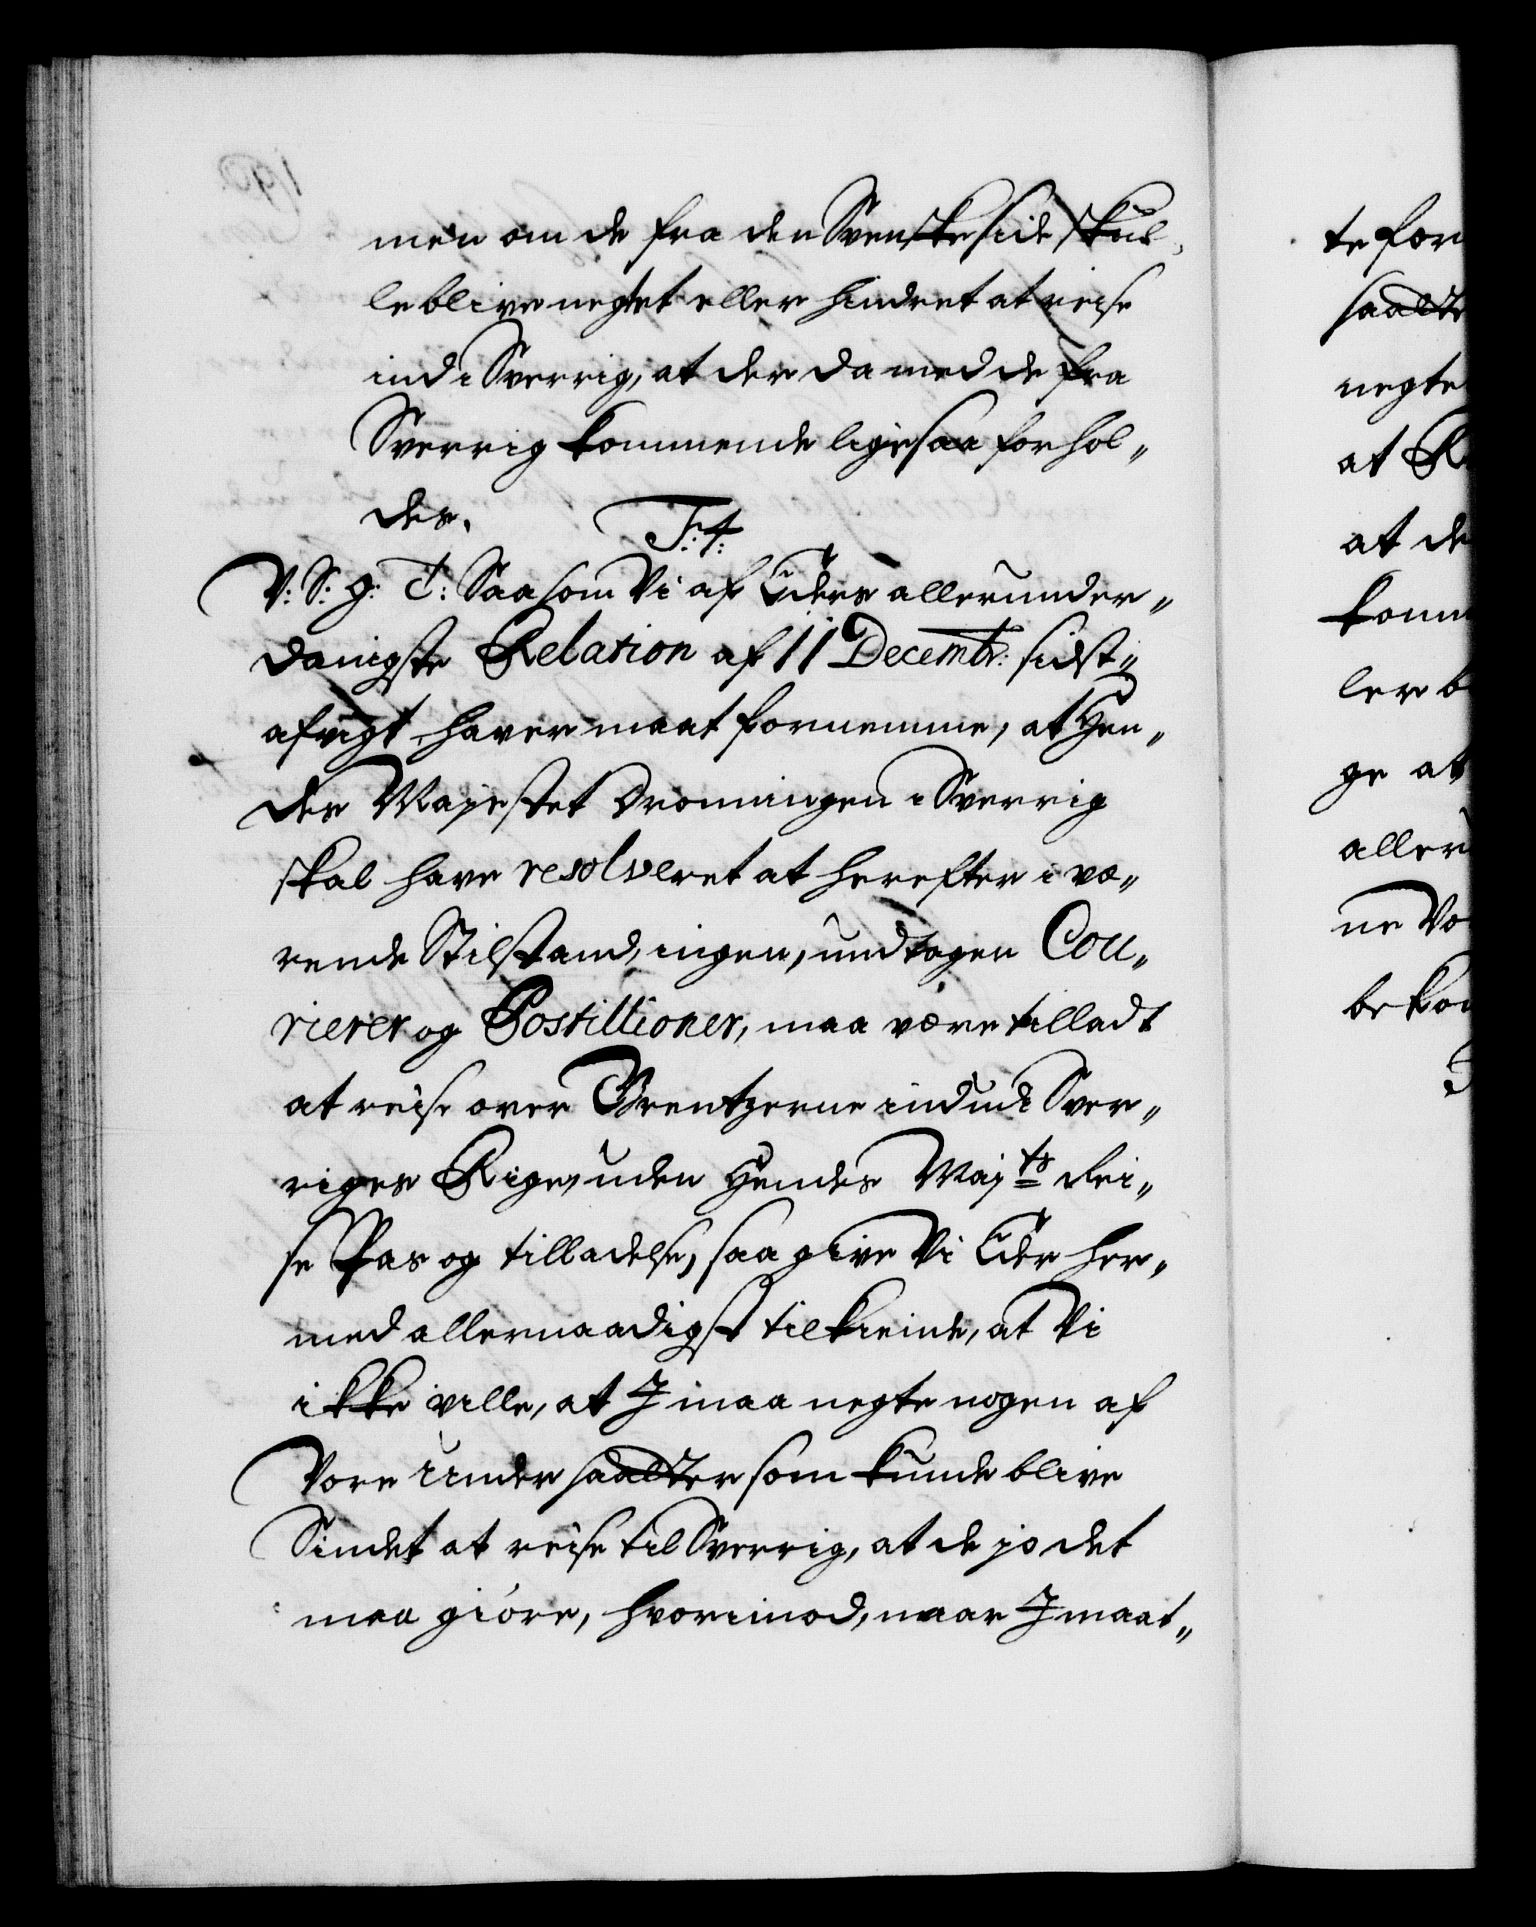 men om de fra den Svenske side skul„
le blive negtet eller hindret at reise
ind i Sverrig, at der da med de fra
Sverrig kommende ligesaa forhol„
des.
F: 4:
V: S: G: T: Saasom Vi af Eders allerunder„
danigste Relation af 11 Decembr: sidst„
afvigt haver maat fornemme, at Hen„
des Majestet Dronningen i Sverrig
skal have resolveret at herefter i væ„
rende Stilstand, ingen, undtagen Cou„
rierer og Postillioner, maa være tilladt
at reise over Grentzerne ind udi Sver„
riges Rige, uden Hendes Maj:ts Rei„
se Pas og tilladelse, saa give Vi Eder her„
med allernaadigst tilkiende, at Vi
ikke ville, at I maa negte nogen af
Vore undersaatter som kunde blive
Sindet at reise til Sverrig, at de jo det
maa giøre, hvorimod, naar I maat„
te for
saadte
negte
at R
at de
komm
ler b
ge at
aller
ne Vo
bekom